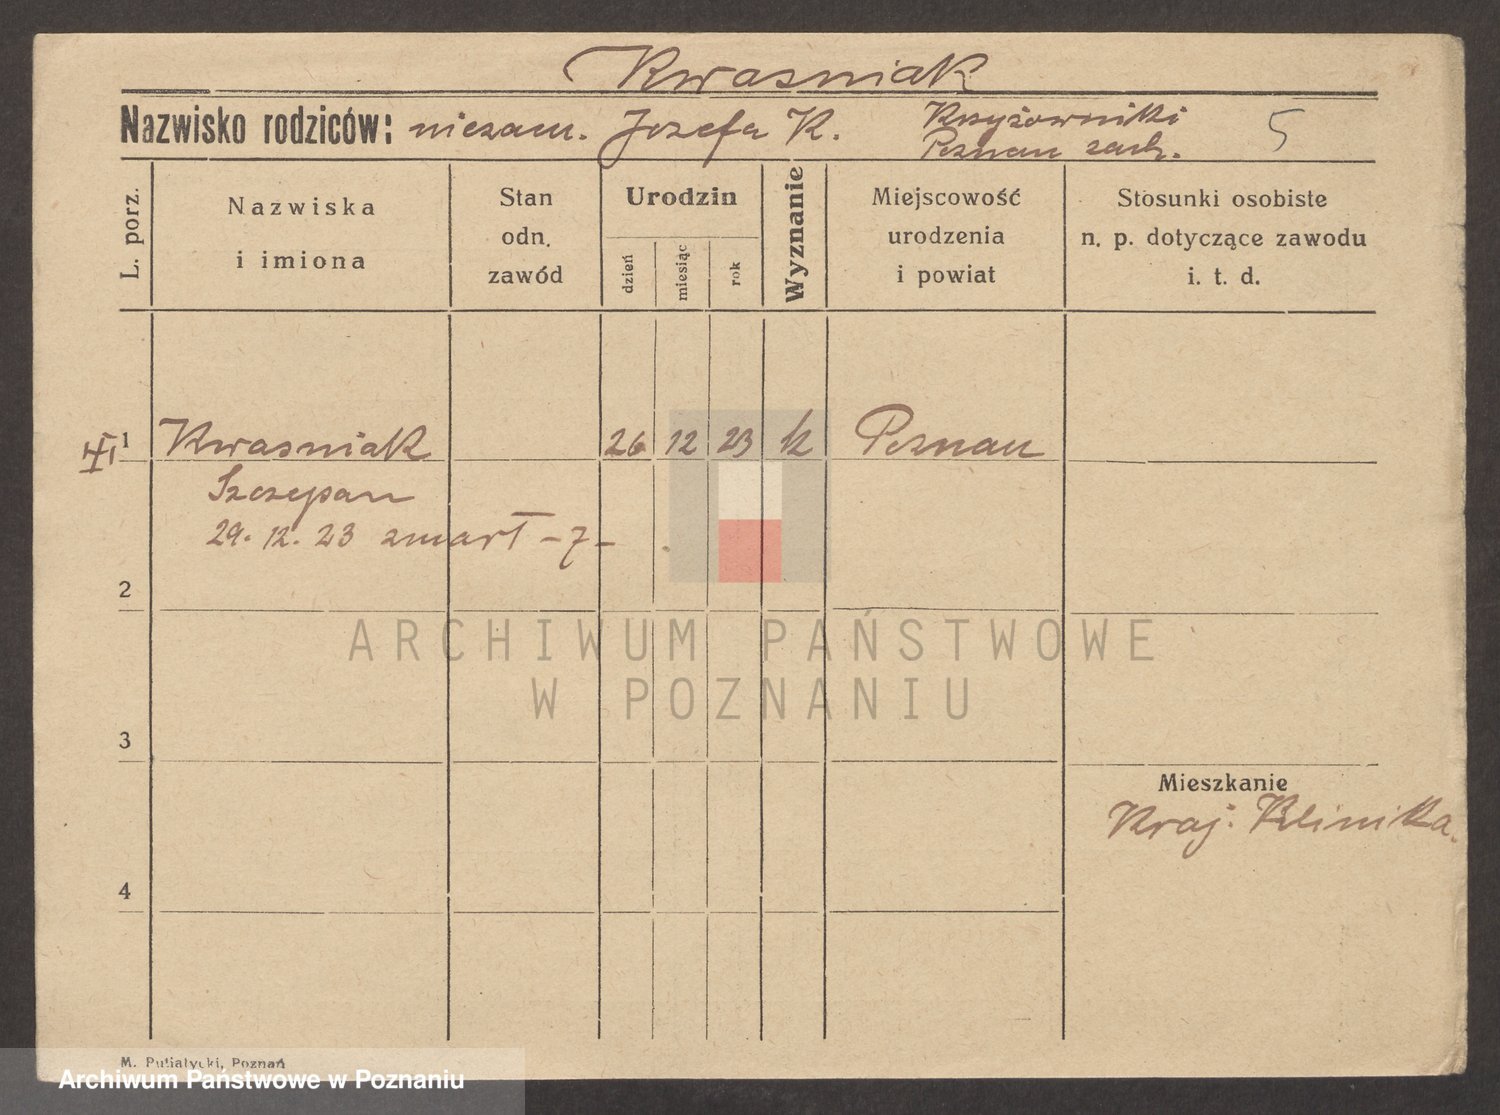 Kwasniak
Nazwisko rodziców: niezam. Jozefa K. Krzyżowniki
Poznan zach. 5
L. porz.
Nazwiska
i imiona
Stan
odn.
zawód
Urodzin
dzień
miesiąc
rok
Wyznanie
Miejscowość
urodzenia
i powiat
Stosunki osobiste
n. p. dotyczące zawodu
i. t. d.
1 Kwasniak 26 12 23 k Poznan
Szczepan
29. 12. 23 zmarł -7-
2
3
4
Mieszkanie
Kraj. Klinika.
ARCHIWUM PAŃSTWOWE
W POZNANIU
M. Putiatycki, Poznań
Archiwum Państwowe w Poznaniu